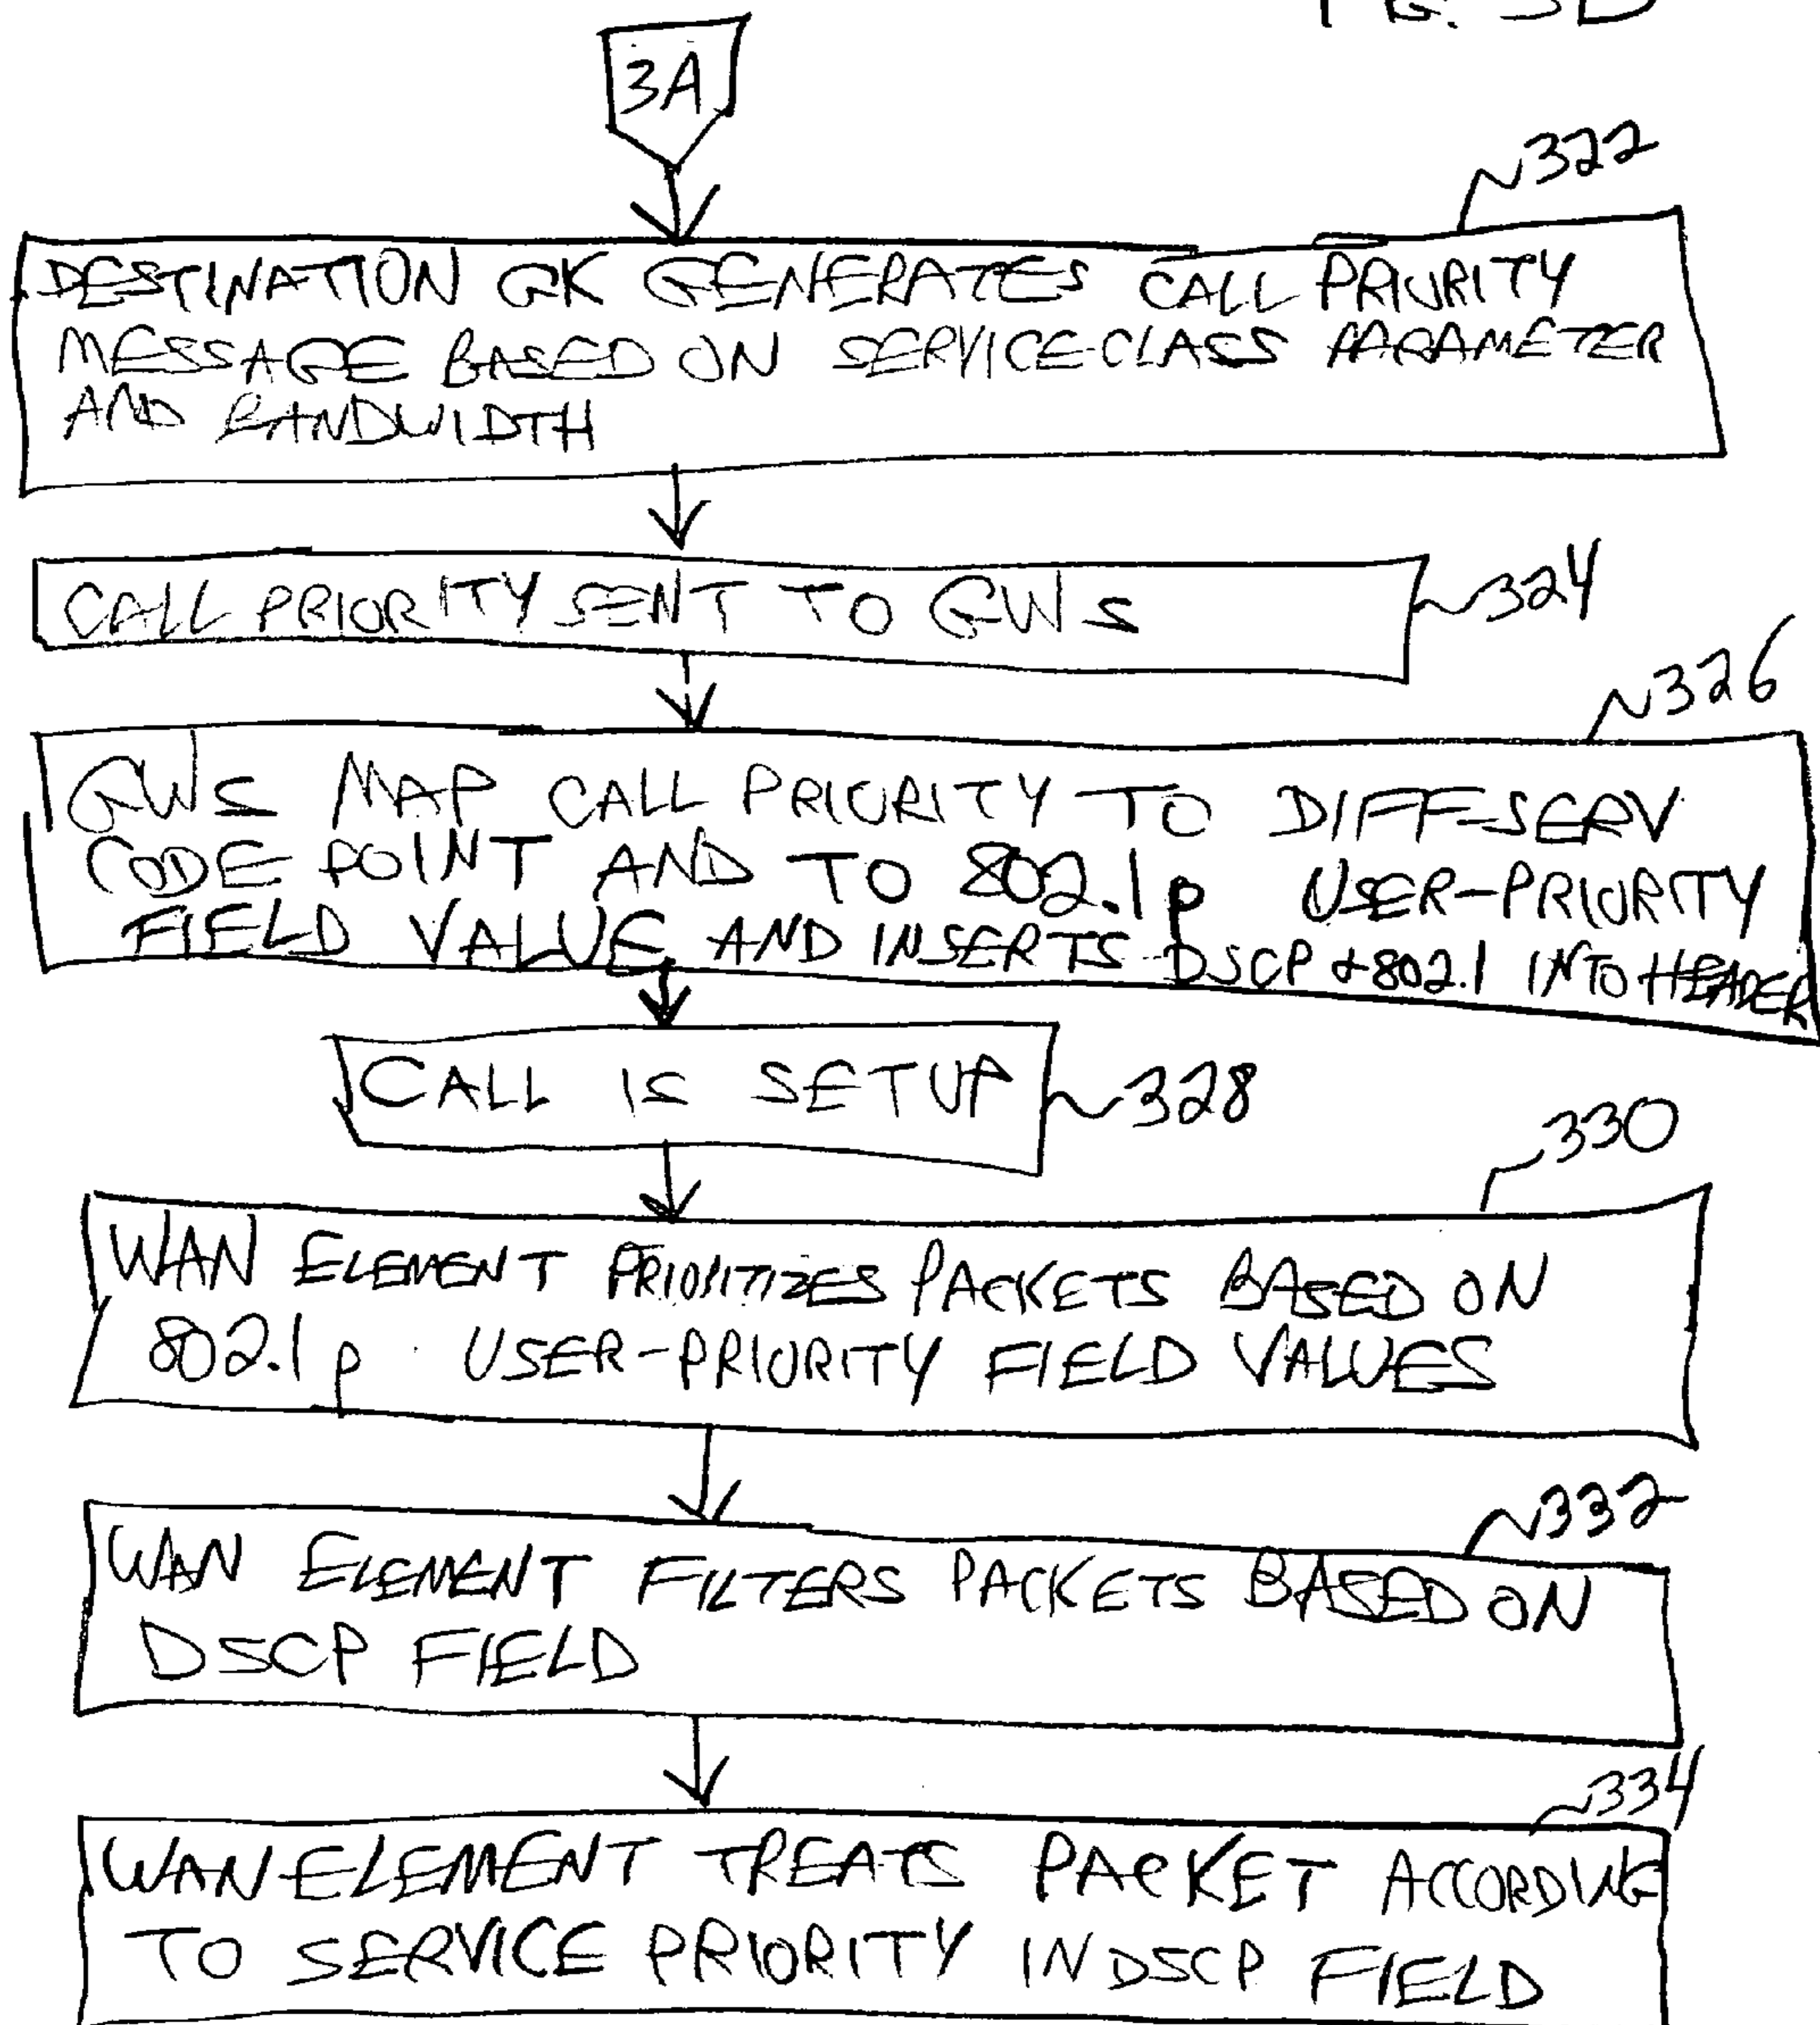 3A
322
DESTINATION GK GENERATES CALL PRIORITY
MESSAGE BASED ON SERVICE-CLASS PARAMETER
AND BANDWIDTH
CALL PRIORITY SENT TO GWs
324
326
GWs MAP CALL PRIORITY TO DIFF-SERV
CODE POINT AND TO 802.1p USER-PRIORITY
FIELD VALUE AND INSERTS DSCP & 802.1 INTO HEADER
CALL IS SETUP
328
330
WAN ELEMENT PRIORITIZES PACKETS BASED ON
802.1p USER-PRIORITY FIELD VALUES
332
WAN ELEMENT FILTERS PACKETS BASED ON
DSCP FIELD
334
WAN ELEMENT TREATS PACKET ACCORDING
TO SERVICE PRIORITY IN DSCP FIELD